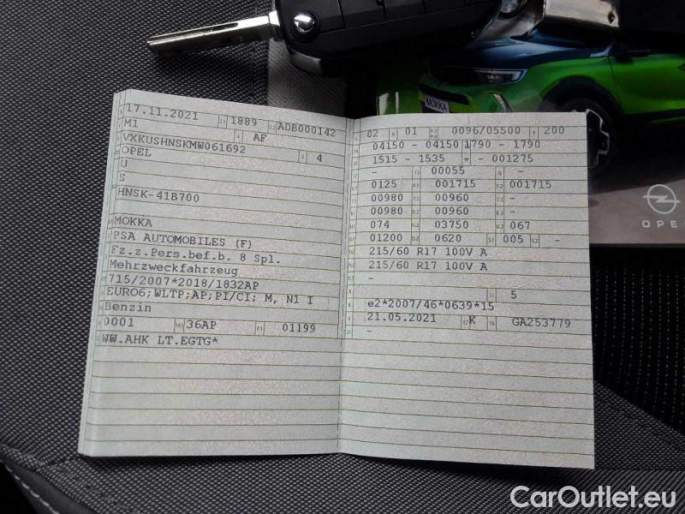 MOKKA
OPEL
17.11.2021 1889 ADB000142
M1 AF
VXKUSHNSKMW061692 4
OPEL
U
S
HNSK-41B700
MOKKA
PSA AUTOMOBILES (F)
Fz.z.Pers.bef.b. 8 Spl.
Mehrzweckfahrzeug
715/2007*2018/1832AP
EURO6;WLTP;AP;PI/CI; M, N1 I
Benzin
0001 36AP 01199
WW.AHK LT.EGTG*
02 01 0096/05500 200
04150 - 04150 1790 - 1790
1515 - 1535 - 001275
- 00055 -
0125 001715 001715
00980 00960 -
00980 00960 -
074 03750 067
01200 0620 005 -
215/60 R17 100V A
215/60 R17 100V A
-
- 5
e2*2007/46*0639*15
21.05.2021 K GA253779
-
CarOutlet.eu